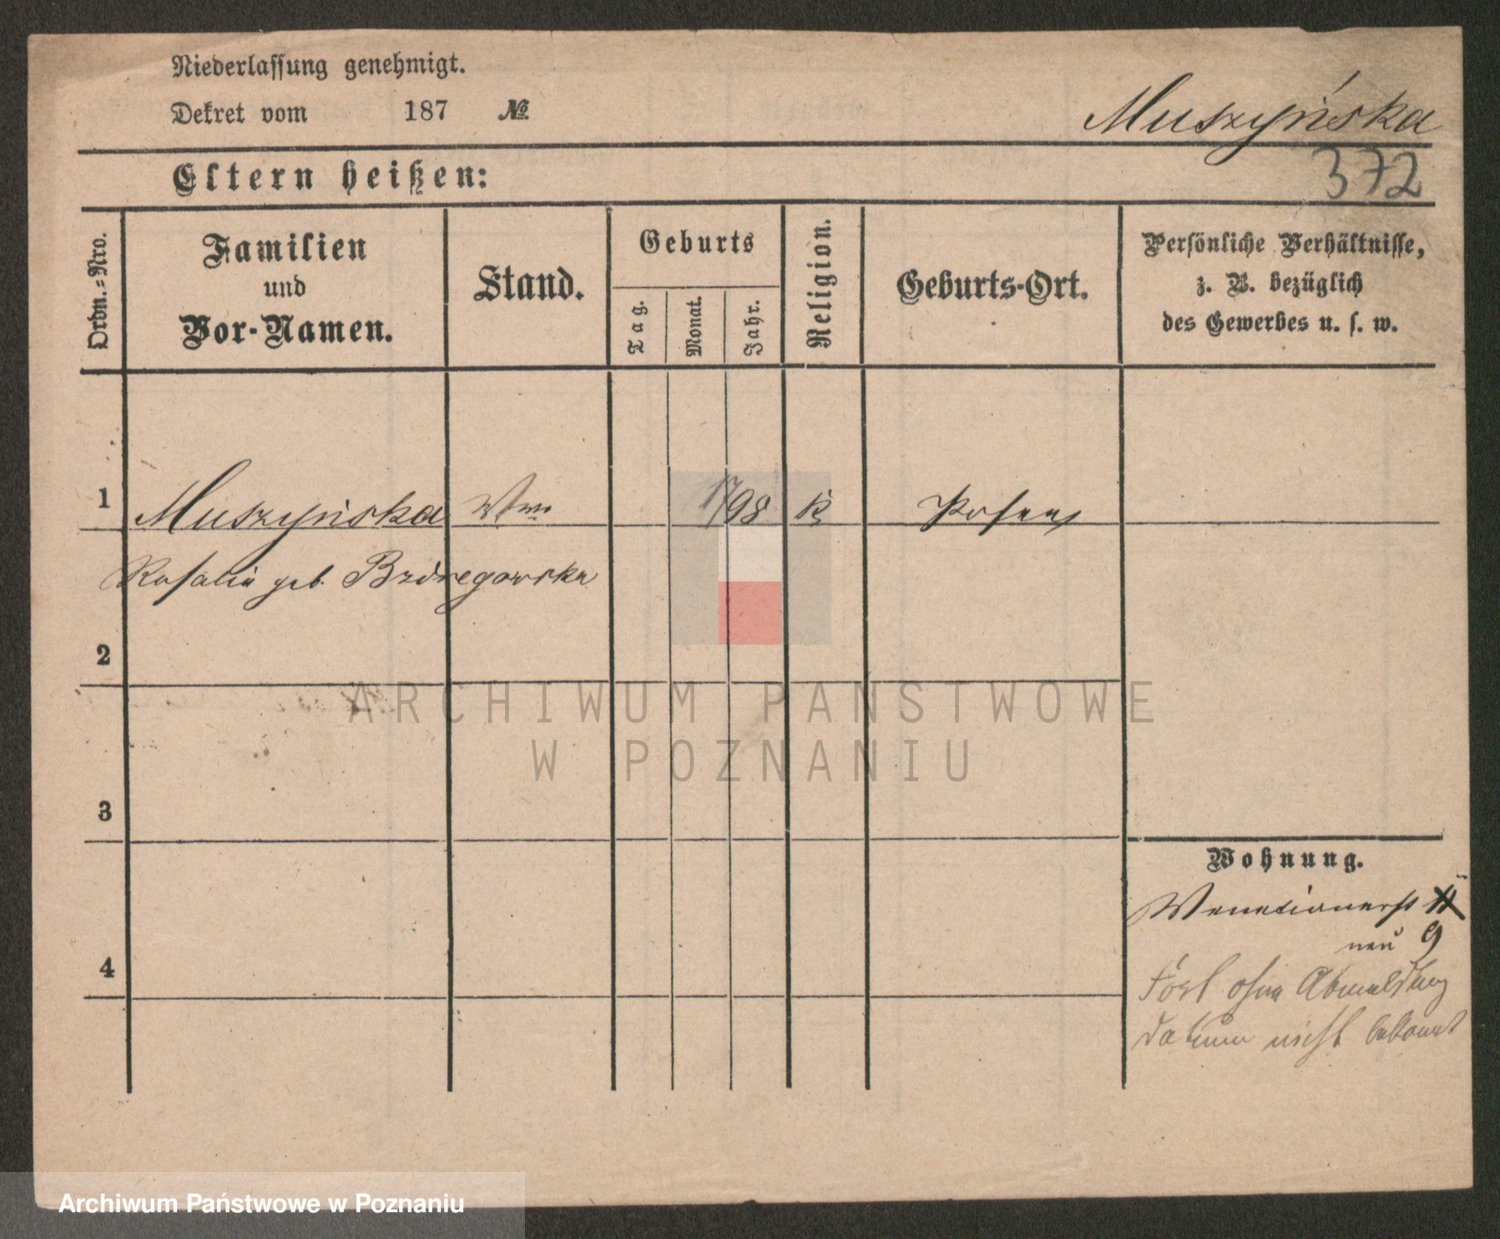 Niederlassung genehmigt.
Dekret vom 187 №
Muszyńska
372
Eltern heißen:
Ordn.-Nro.
Familien
und
Vor-Namen.
Stand.
Geburts
Tag.
Monat.
Jahr.
Religion.
Geburts-Ort.
Persönliche Verhältnisse,
z. B. bezüglich
des Gewerbes u. s. w.
1 Muszyńska Wwe 1798 K Posen
Rosalia geb. Bzdregowska
2
ARCHIWUM PAŃSTWOWE
W POZNANIU
3
Wohnung.
Venetianerst
neu 9
4
Fort ohne Abmeldung
datum nicht bekannt
Archiwum Państwowe w Poznaniu